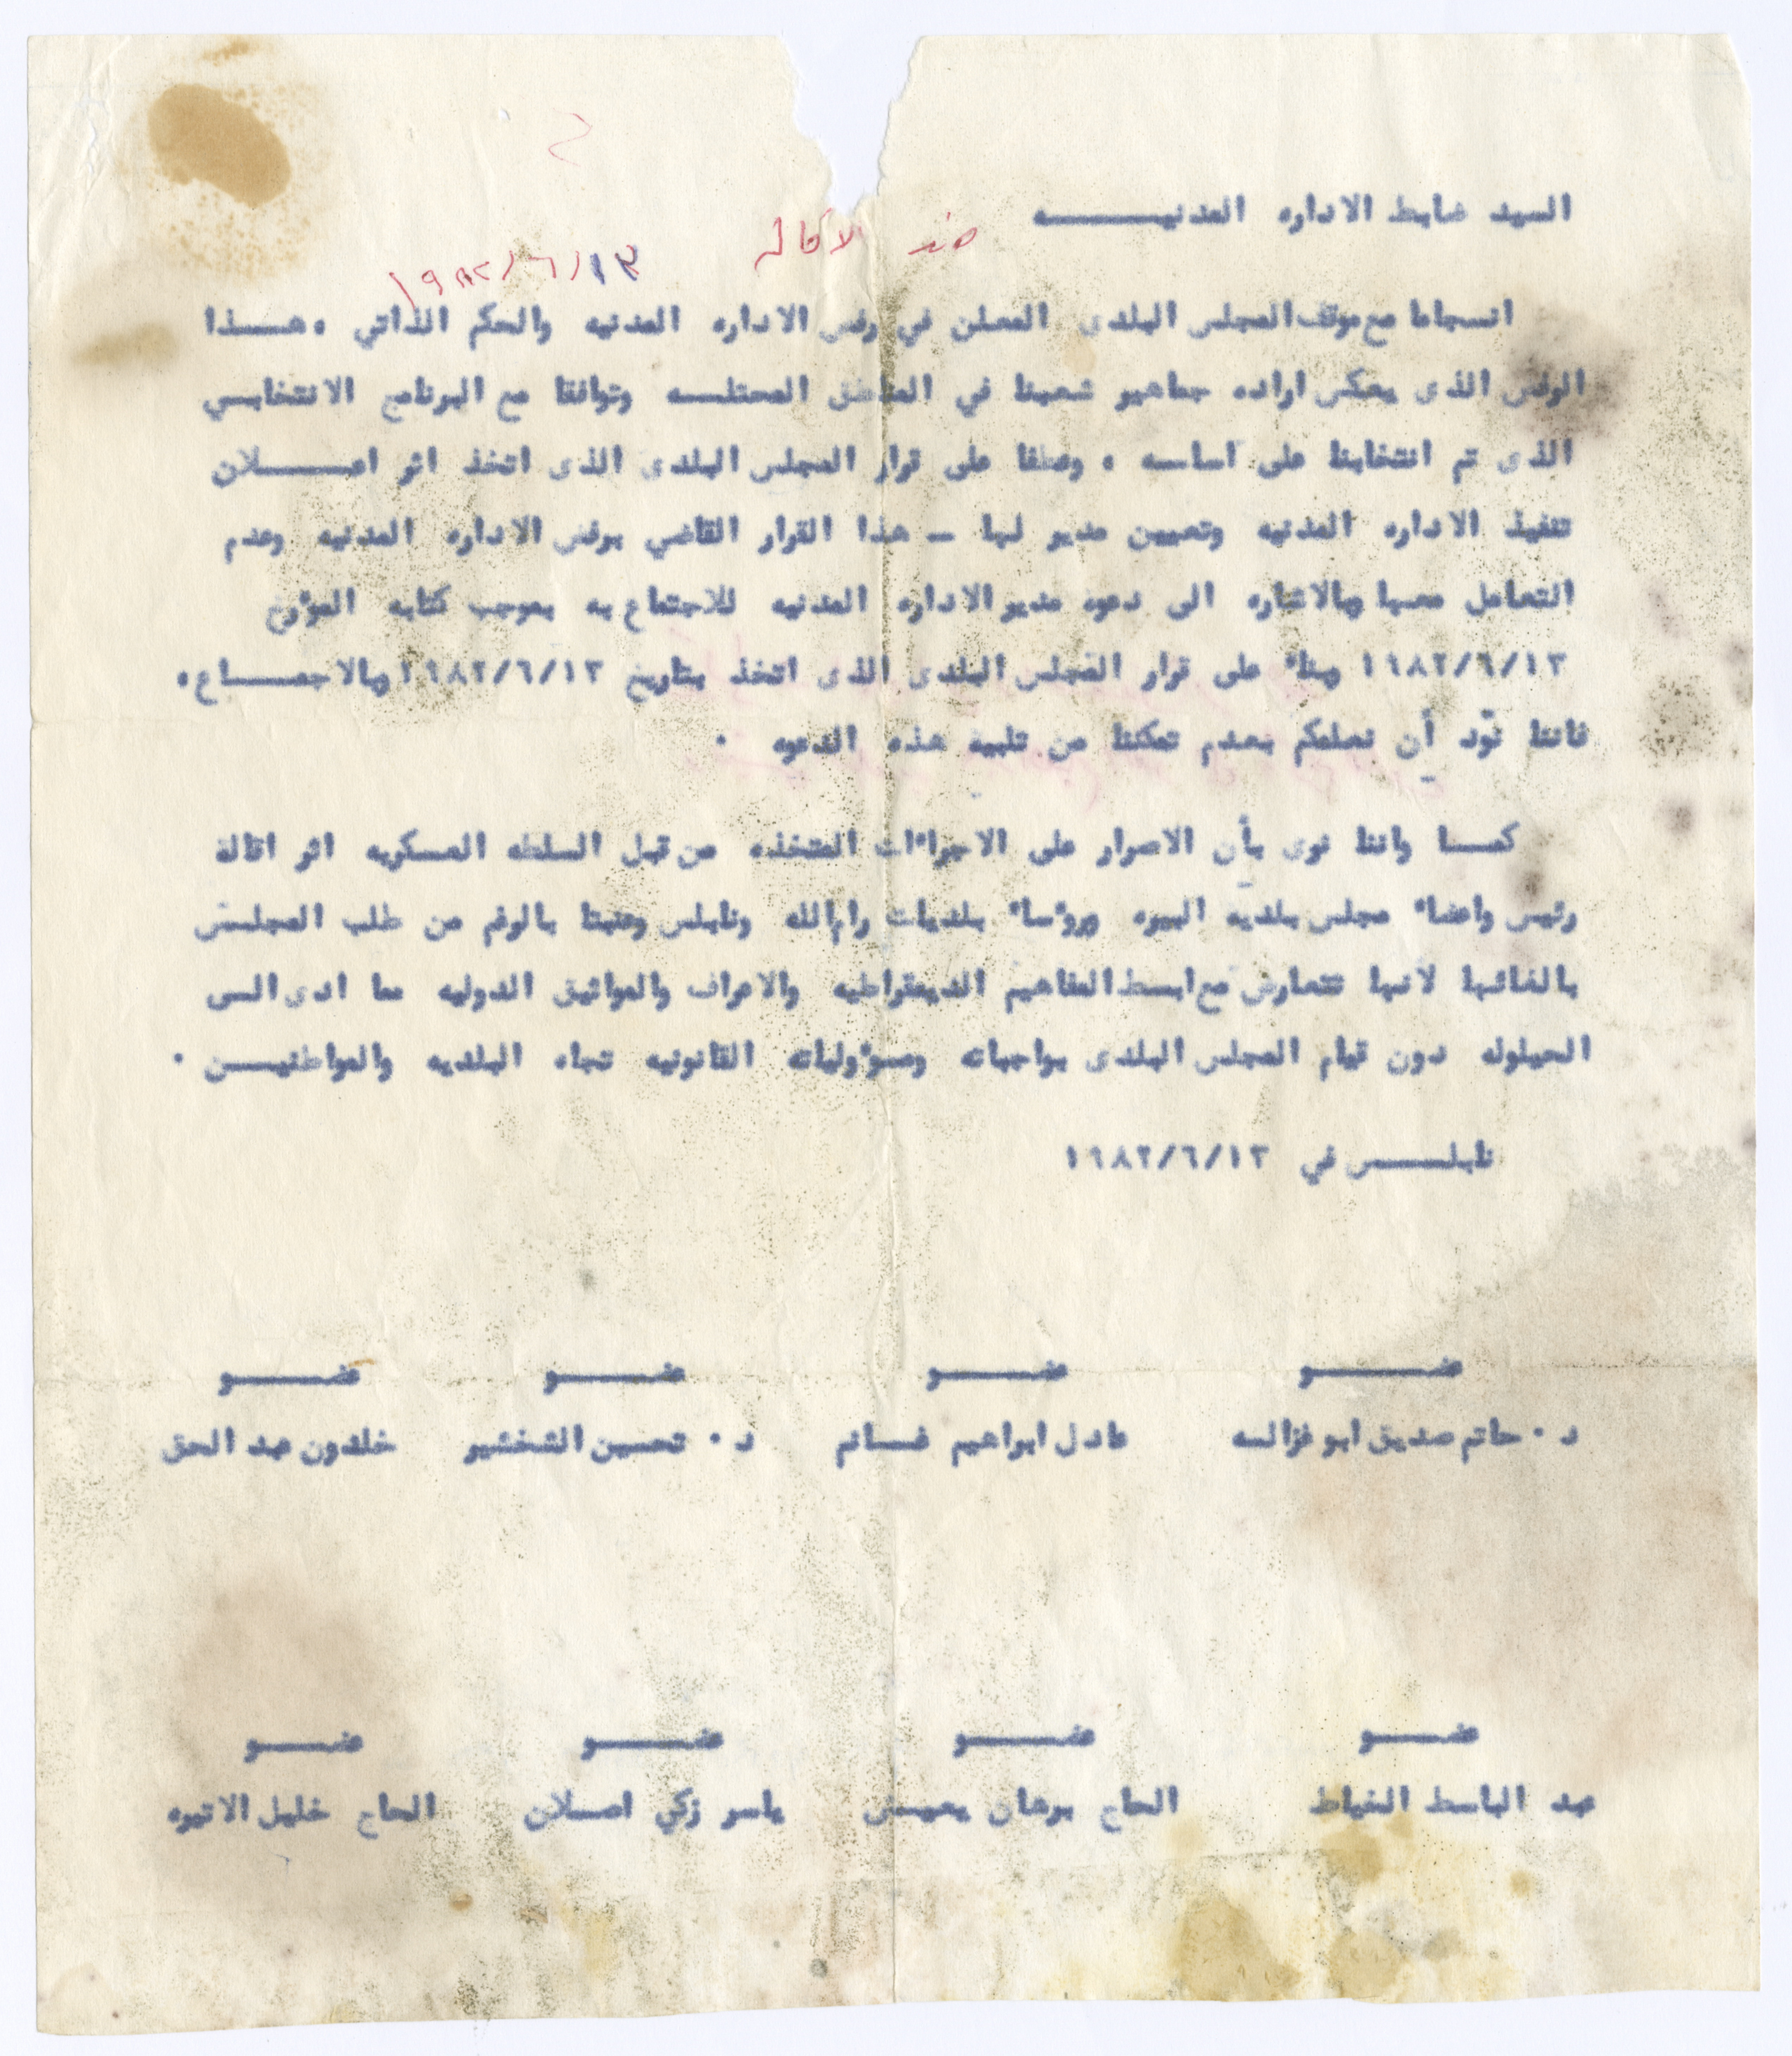 السيد ضابط الاداره المدنيـــــــه
ضد الاقاله
١٩٨٢/٦/١٣
انسجاما مع موقف المجلس البلدى المعلن في رفض الاداره المدنيه والحكم الذاتي ، هـــذا
الرفض الذى يعكس اراده جماهير شعبنا في المناطق المحتلـــه وتوافقا مع البرنامج الانتخابـي
الذى تم انتخابنا على اساسه ، وعطفا على قرار المجلس البلدى الذى اتخذ اثر اعـــــلان
تنفيذ الاداره المدنيه وتعيين مدير لها ــ هذا القرار القاضي برفض الاداره المدنيه وعدم
التعامل معـها وبالاشاره الى دعوه مدير الاداره المدنيه للاجتماع به بموجب كتابه المؤرخ
١٩٨٢/٦/١٣ وبناء على قرار المجلس البلدى الذى اتخذ بتاريخ ١٩٨٢/٦/١٣ وبالاجمـــاع ،
فاننا نّود أن نعلمكم بعـدم تمكننا من تلبية هذه الدعوه ٠
كمــا واننا نرى بأن الاصرار على الاجراءات المتخذه من قبل السلطه العسكريه اثر اقالة
رئيس واعضاء مجلس بلديه البيره ورؤساء بلديات رام الله ونابلس وعنبتا بالرغم من طلب المجلـس
بالغائـها لانـها تتعارض مع ابسط المفاهيم الديمقراطيه والاعراف والمواثيق الدوليه مما ادى الـى
الحيلوله دون قيام المجلس البلدى بواجباته ومسؤولياته القانونيه تجاه البلديه والمواطنيــن ٠
نابلـــــس في ١٩٨٢/٦/١٣
عضـــــو عضـــــو عضـــــو عضـــــو
د ٠ حاتم صديق ابو غزالــه عادل ابراهيم غــانم د ٠ تحسين الشخشير خلدون عبد الحق
عضـــــو عضـــــو عضـــــو عضـــــو
عبد الباسط الخياط الحاج برهان يعيــش ياسر زكي اصــلان الحاج خليل الاتيره